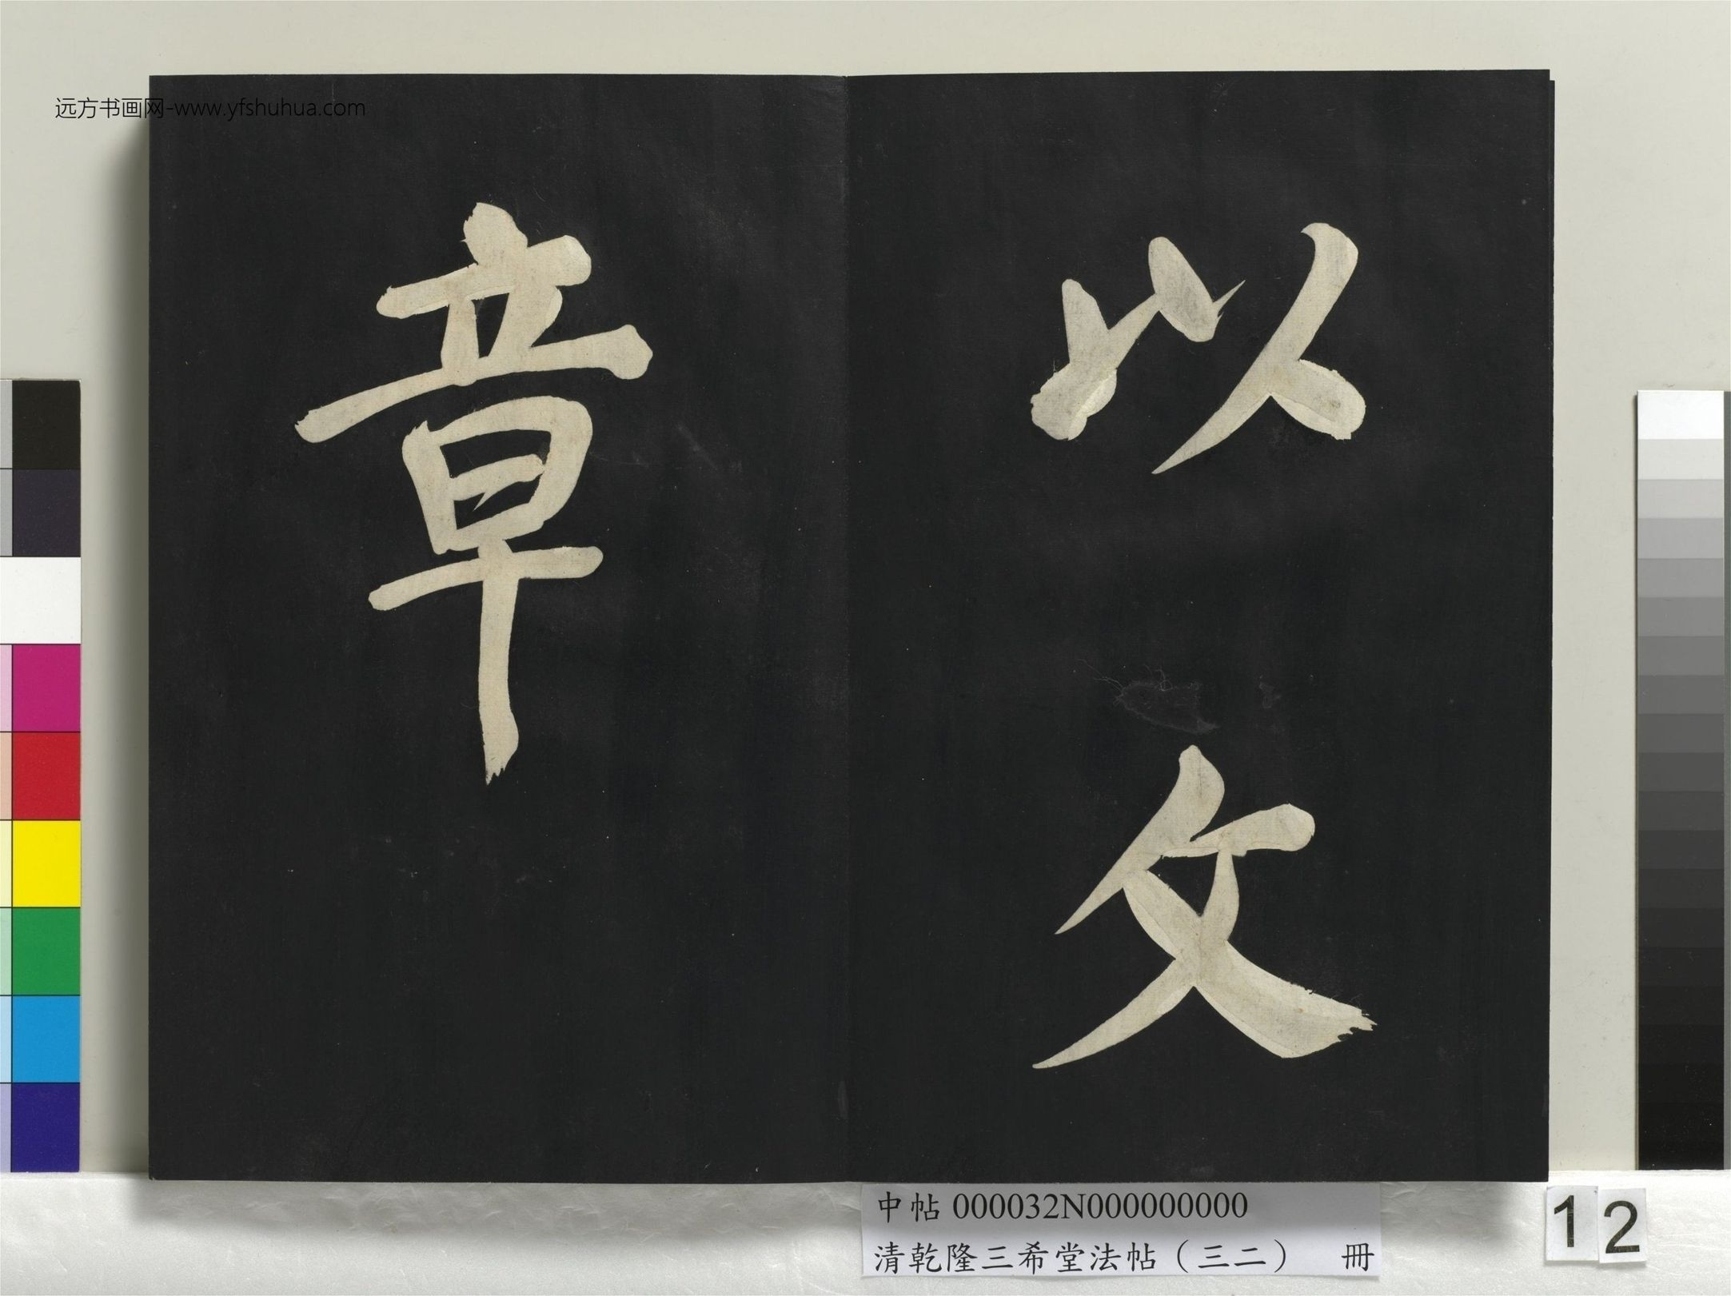 远方书画网-www.yfshuhua.com
以文
章
中帖 000032N000000000
清乾隆三希堂法帖（三二） 冊
12